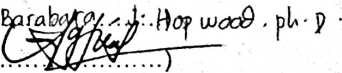 Barabara. J. Hopwood. ph. D.